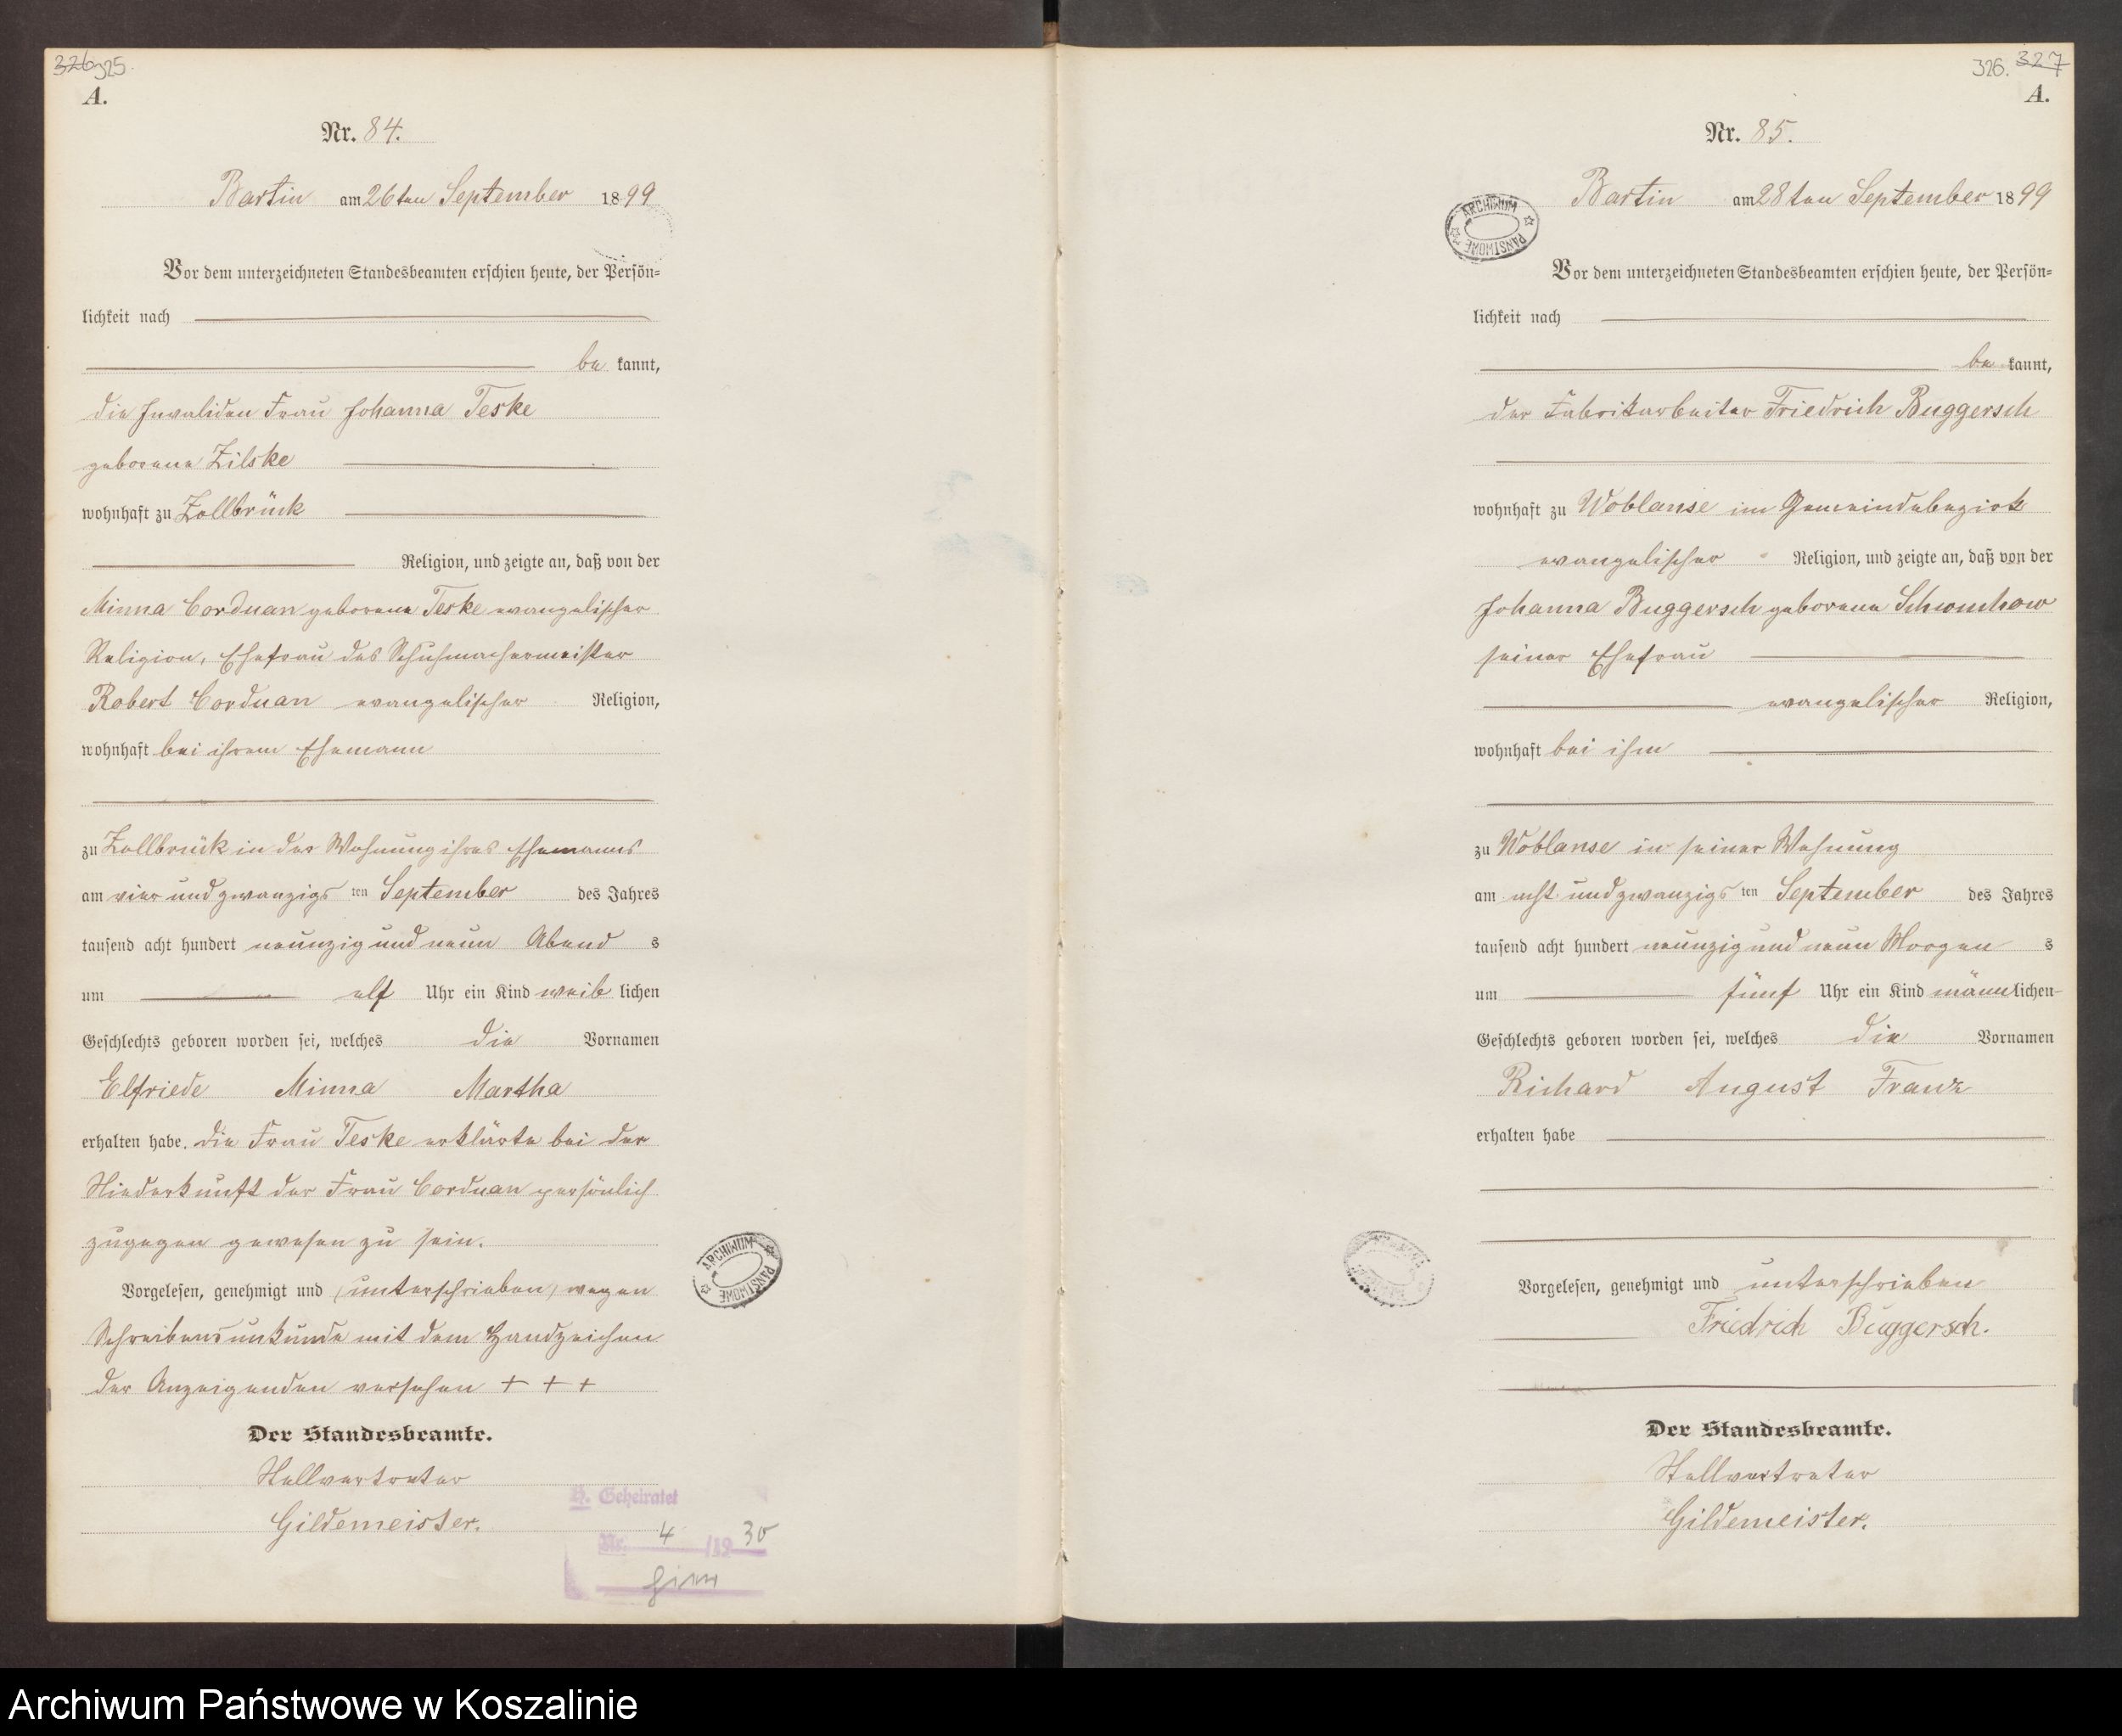 326 325.
A.
Nr. 84.
Bartin am 26ten September 1899
Vor dem unterzeichneten Standesbeamten erschien heute, der Persön=
lichkeit nach
be kannt,
die Invaliden Frau Johanna Teske
geborene Zilske
wohnhaft zu Zollbrück
Religion, und zeigte an, daß von der
Minna Corduan geborene Teske evangelischer
Religion, Ehefrau des Schuhmachermeister
Robert Corduan evangelischer Religion,
wohnhaft bei ihrem Ehemann
zu Zollbrück in der Wohnung ihres Ehemanns
am vier und zwanzigs ten September des Jahres
tausend acht hundert neunzig und neun Abend s
um elf Uhr ein Kind weib lichen
Geschlechts geboren worden sei, welches die Vornamen
Elfriede Minna Martha
erhalten habe. Die Frau Teske erklärte bei der
Niederkunft der Frau Corduan persönlich
zugegen gewesen zu sein.
Vorgelesen, genehmigt und (unterschrieben) wegen
Schreibensunkunde mit dem Handzeichen
der Anzeigenden versehen + + +
Der Standesbeamte.
Stellvertreter
Gildemeister.
H. Geheiratet
Nr. 4 /19 30
ARCHIWUM PAŃSTWOWE
326. 327
A.
Nr. 85.
Bartin am 28ten September 1899
ARCHIWUM PAŃSTWOWE
Vor dem unterzeichneten Standesbeamten erschien heute, der Persön=
lichkeit nach
be kannt,
der Fabrikarbeiter Friedrich Buggersch
wohnhaft zu Woblanse im Gemeindebezirk
evangelischer Religion, und zeigte an, daß von der
Johanna Buggersch geborene Schwuchow
seiner Ehefrau
evangelischer Religion,
wohnhaft bei ihm
zu Woblanse in seiner Wohnung
am acht und zwanzigs ten September des Jahres
tausend acht hundert neunzig und neun Morgen s
um fünf Uhr ein Kind männlichen
Geschlechts geboren worden sei, welches die Vornamen
Richard August Franz
erhalten habe
Vorgelesen, genehmigt und unterschrieben
Friedrich Buggersch.
Der Standesbeamte.
Stellvertreter
Gildemeister.
Archiwum Państwowe w Koszalinie